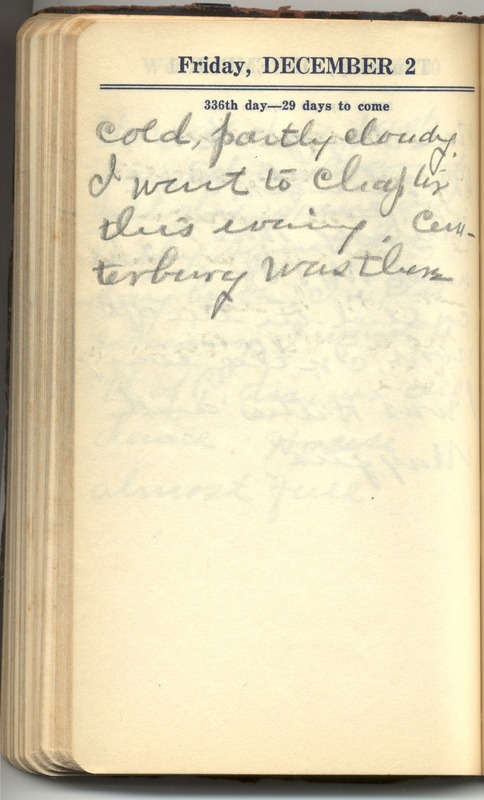 Friday, DECEMBER 2
336th day—29 days to come
cold, partly cloudy.
I went to Chapter
this evening. Can-
terbury was there
almost full